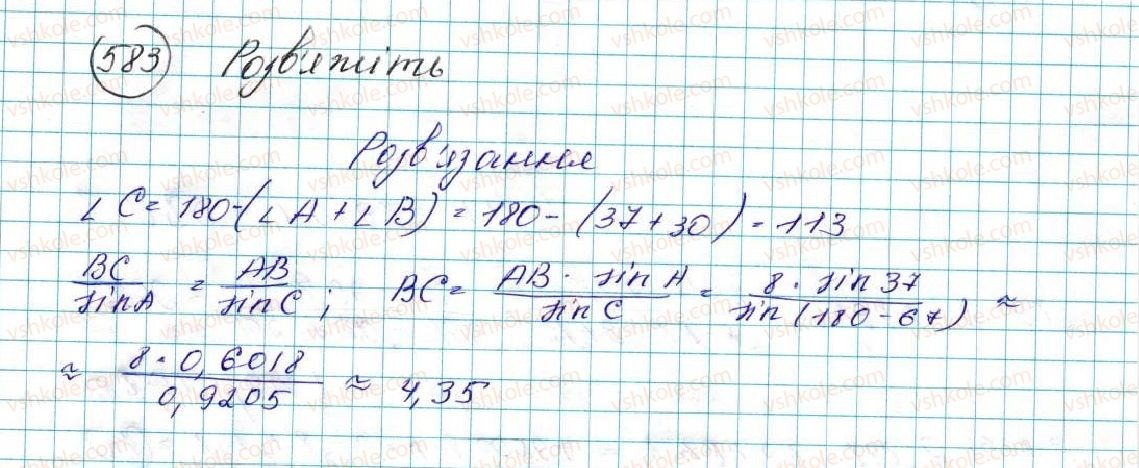 583 Розв'яжіть
Розв'язання
∠ C = 180-(∠ A + ∠ B) = 180 - (37 + 30) = 113
BC / sin A = AB / sin C ; BC = AB · sin A / sin C = 8 · sin 37 / sin (180 - 67) ≈
≈ 8 · 0,6018 / 0,9205 ≈ 4,35